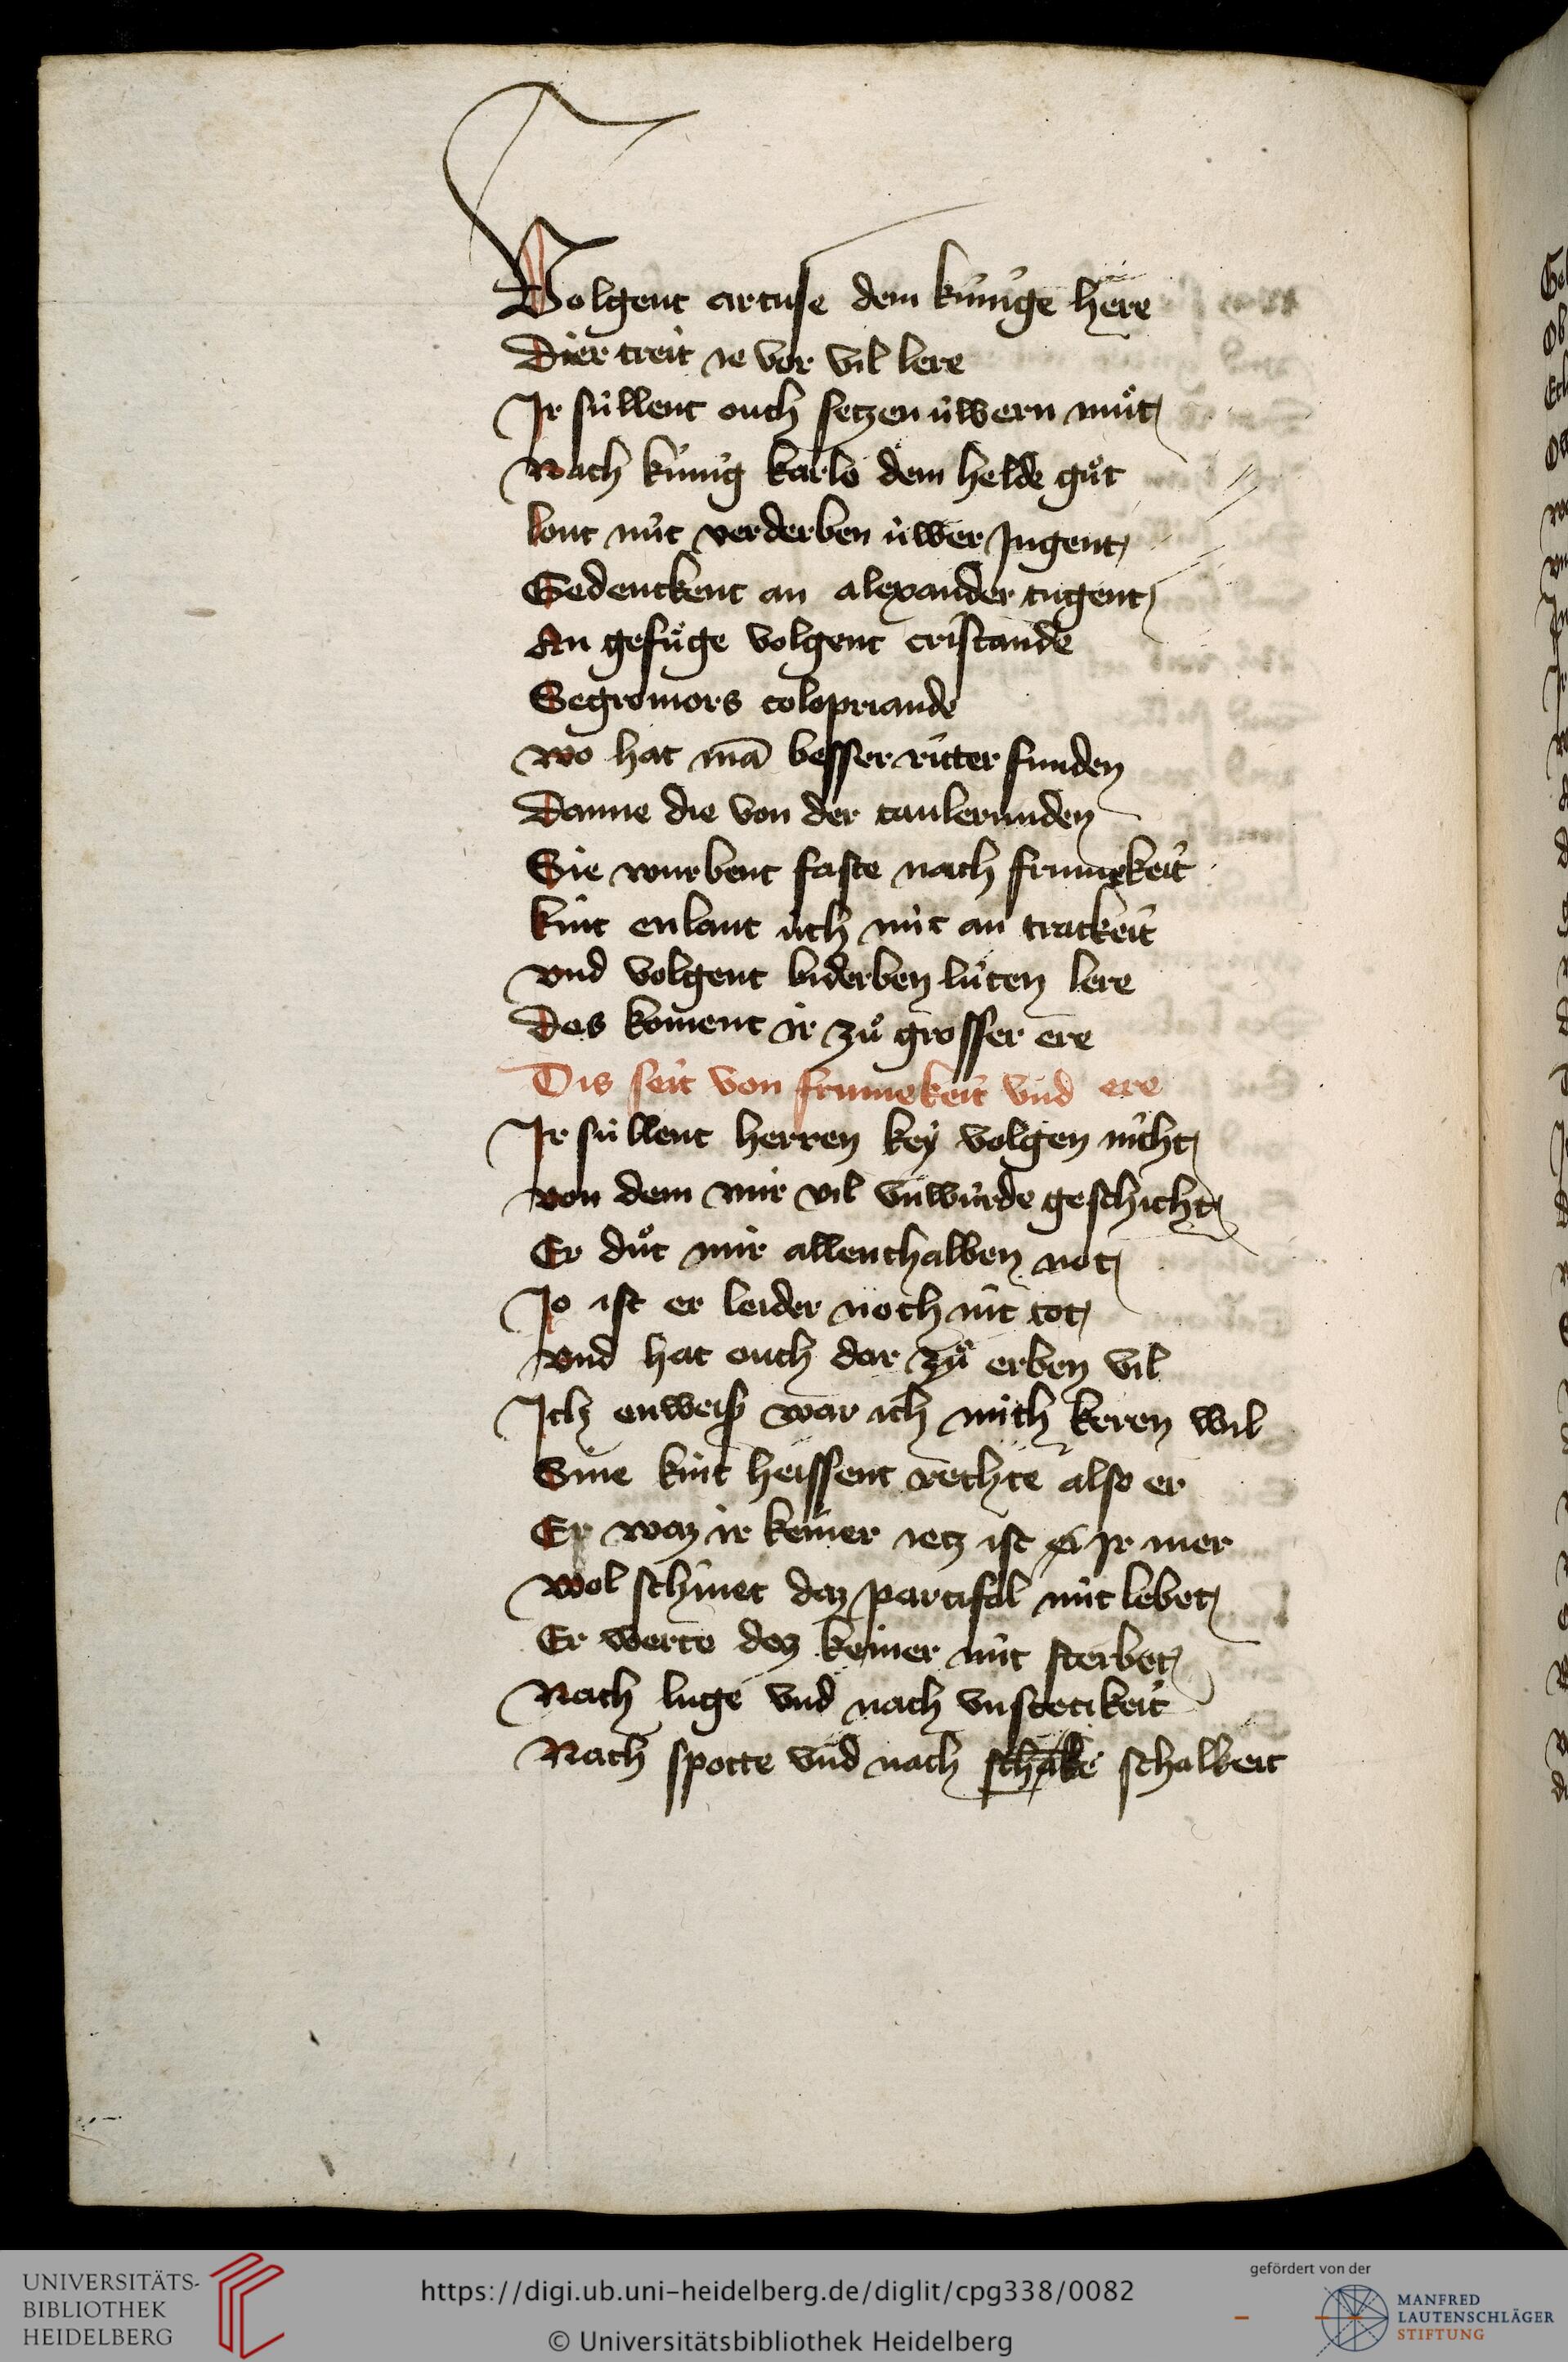 Volgent artuse dem kúnige here
Dier treit ie vor vil lere
Ir súllent ouch setzen úwern muͦt
Nach kúnig karlo dem helde guͦt
lont nút verderben úwer Jugent
Gedenckent an alexander tugent
An gefuͤge volgent tristande
Segromors colopriande
wo hat mā besser ritter funden
Danne die von der taulerunden
Sie wurbent faste nach frumekeit
kint enlant úch nút an trackeit
vnd volgent biderben lúten lere
Das koment ir zuͦ grosser ere
Dis seit von frumekeit vnd ere
Ir súllent herren key volgen nicht
von dem mir vil vnwúrde geschicht
Er duͦt mir allenthalben not
Jo ist er leider noch nit tot
vnd hat ouch dar zuͦ erben vil
Ich enweiß war ich mich keren wil
Sine kint heissent rechte also er
Er waz ir keiner ietz ist ir mer
wol schinet daz partifal nút lebet
Er werte daz keiner nút sterbet
Nach luge vnd nach vnstetikeit
Nach spotte vnd nach schake schalkeit
UNIVERSITÄTS-
BIBLIOTHEK
HEIDELBERG
https://digi.ub.uni-heidelberg.de/diglit/cpg338/0082
© Universitätsbibliothek Heidelberg
gefördert von der
MANFRED
LAUTENSCHLÄGER
STIFTUNG